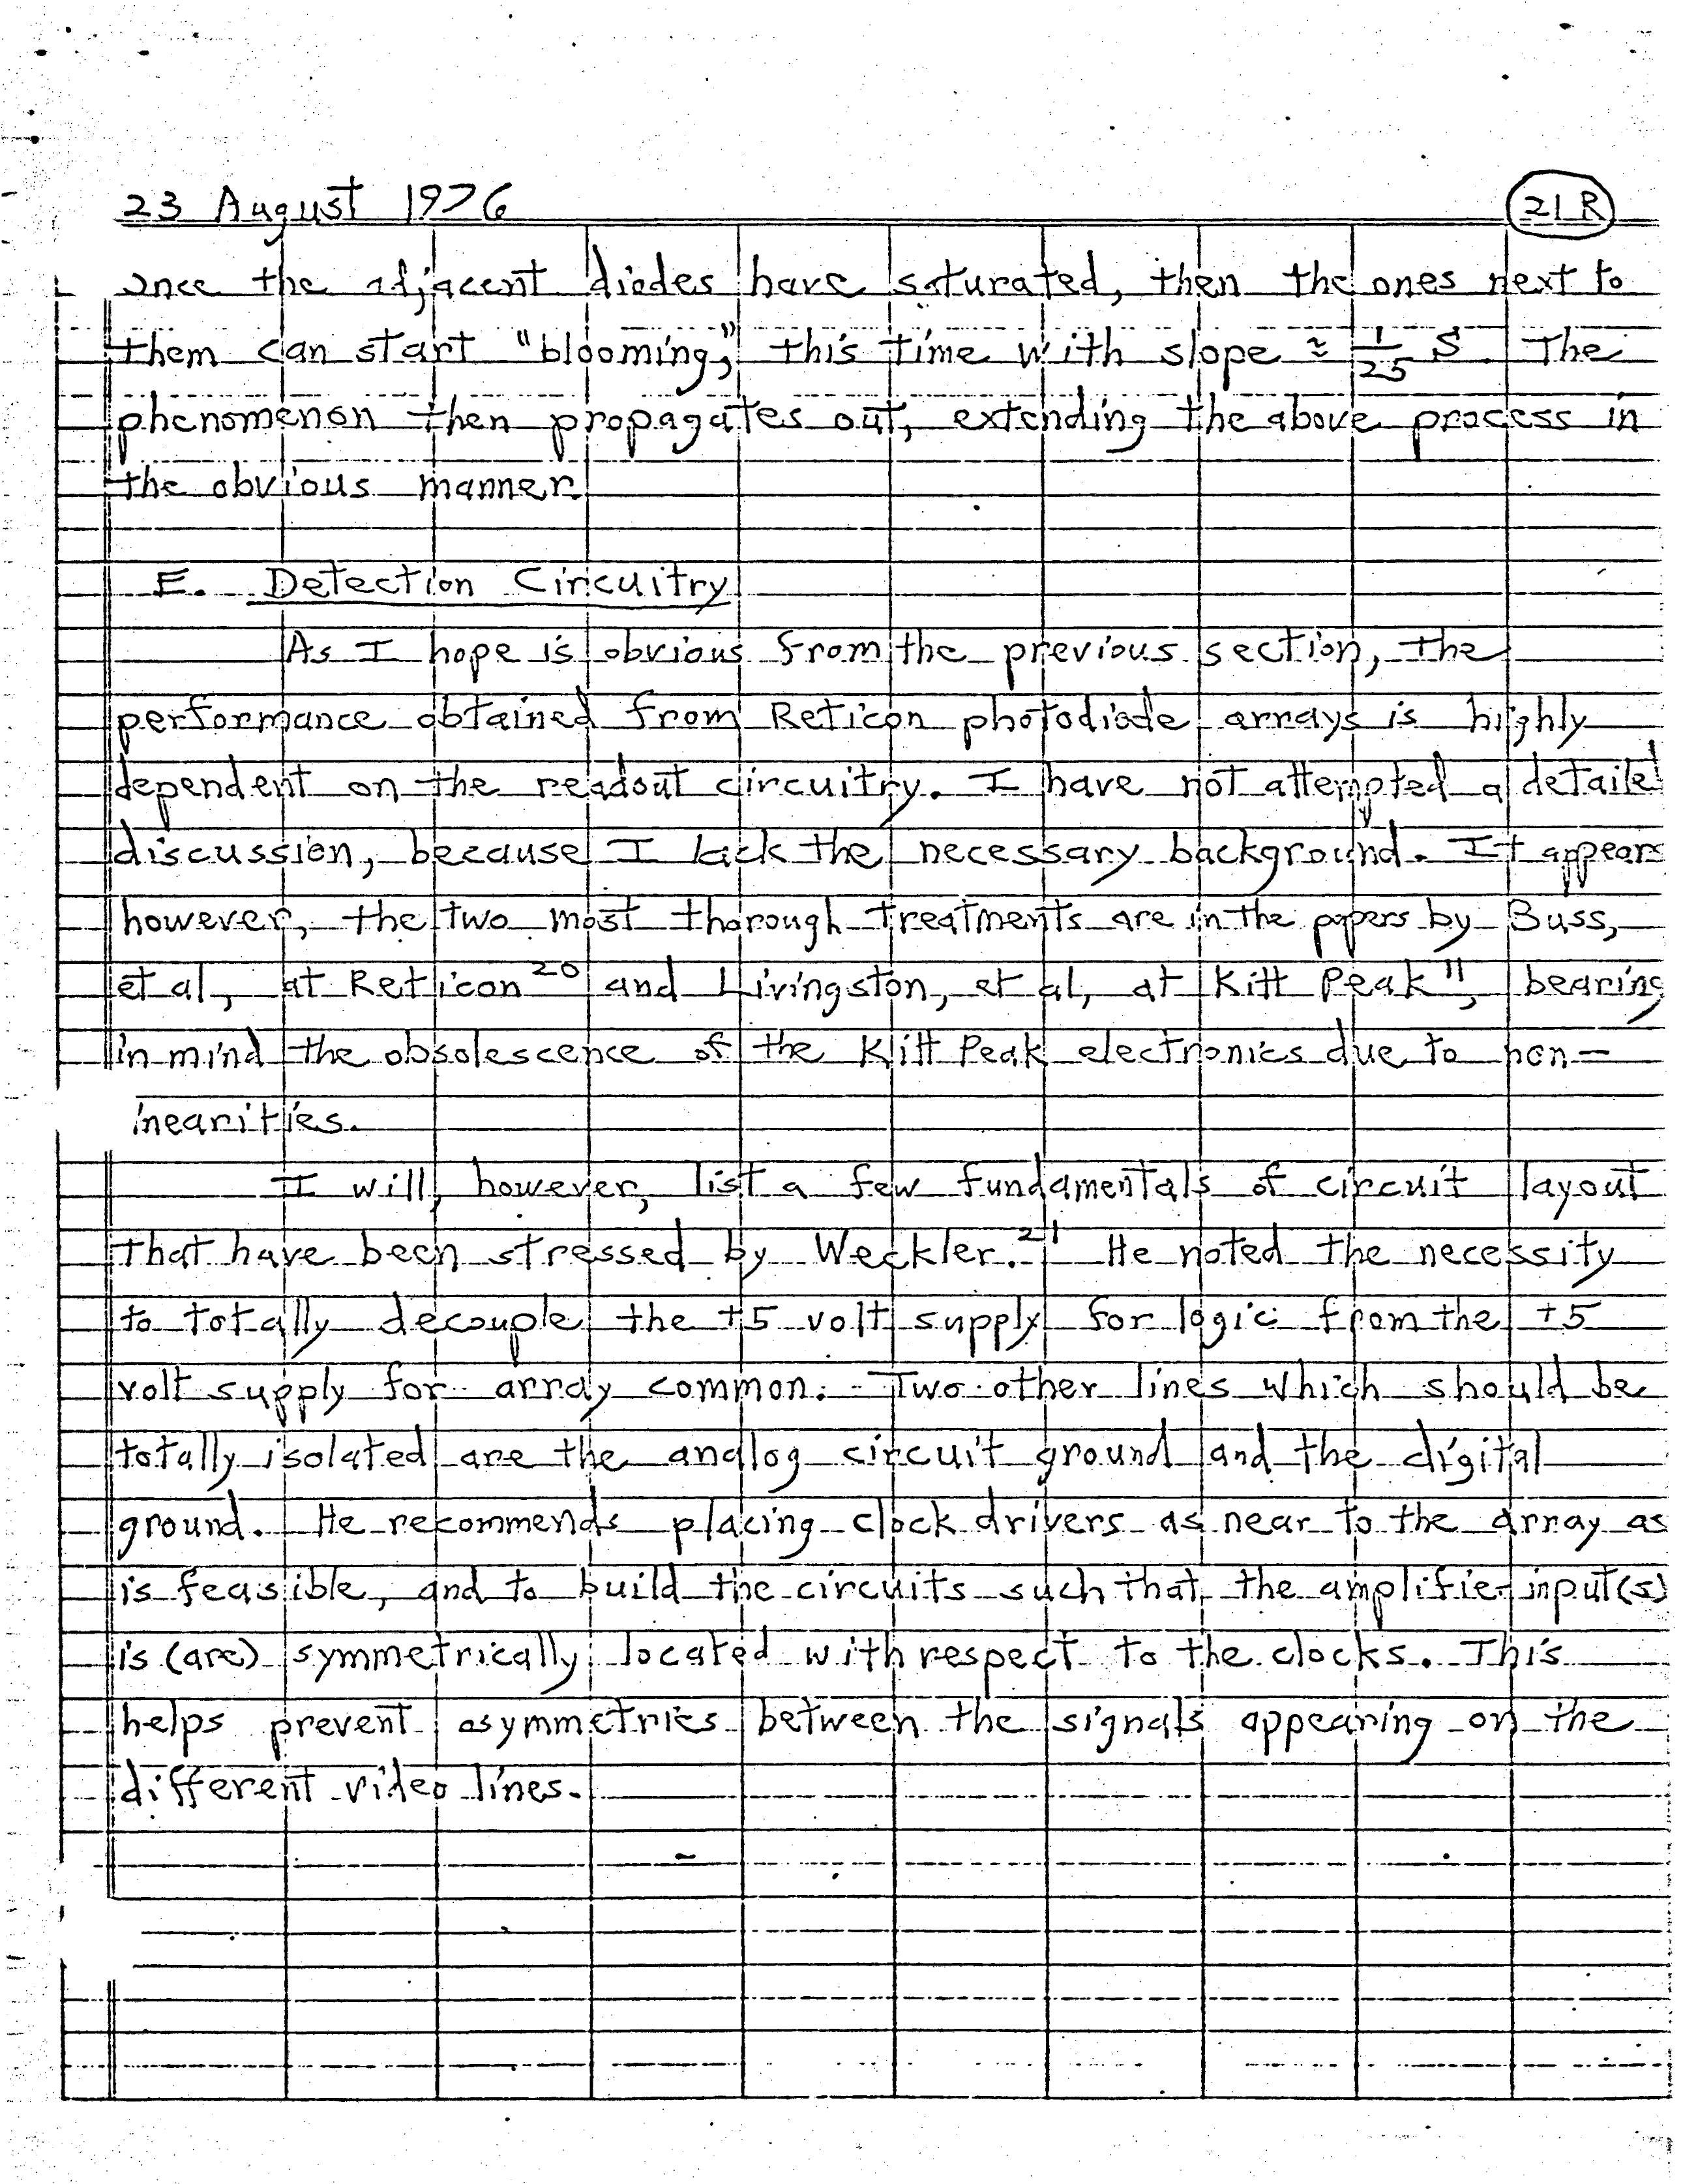 23 August 1976
21 R
once the adjacent diodes have saturated, then the ones next to
them can start "blooming," this time with slope ≈ 1/25 S. The
phenomenon then propagates out, extending the above process in
the obvious manner.
E. Detection Circuitry
As I hope is obvious from the previous section, the
performance obtained from Reticon photodiode arrays is highly
dependent on the readout circuitry. I have not attempted a detailed
discussion, because I lack the necessary background. It appears
however, the two most thorough treatments are in the papers by Buss,
et al, at Reticon²⁰ and Livingston, et al, at Kitt Peak¹¹, bearing
in mind the obsolescence of the Kitt Peak electronics due to non-
inearities.
I will, however, list a few fundamentals of circuit layout
that have been stressed by Weckler.²¹ He noted the necessity
to totally decouple the +5 volt supply for logic from the +5
volt supply for array common. Two other lines which should be
totally isolated are the analog circuit ground and the digital
ground. He recommends placing clock drivers as near to the array as
is feasible, and to build the circuits such that the amplifier input(s)
is (are) symmetrically located with respect to the clocks. This
helps prevent asymmetries between the signals appearing on the
different video lines.